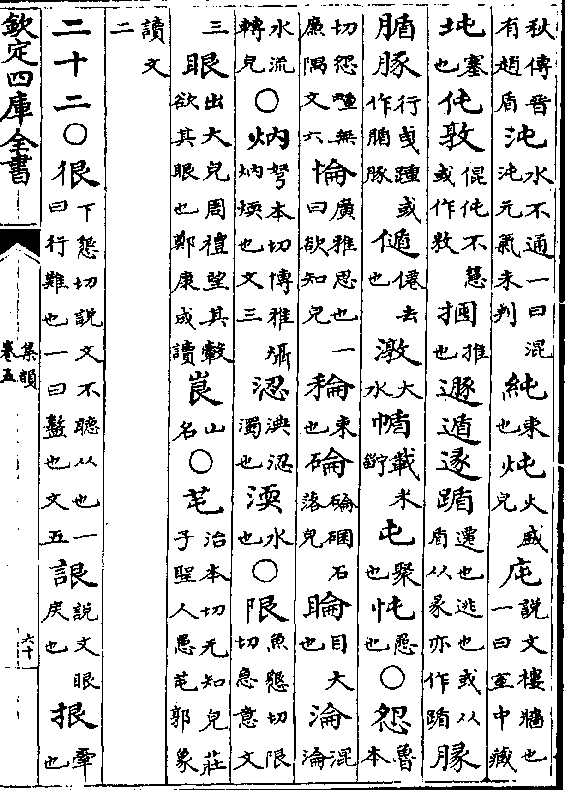 秋傳晉有趙盾沌水不通一曰混沌元氣未判純束也炖火盛皃庉說文樓牆也一曰室中藏
坉塞也伅敦倱伅不慧或作敦推也遯遁遂踲遷也逃也或从盾从彖亦作踲腞
腯豚行曳踵或作腯豚僊去也潡大水載米屯聚也忳愚也○怨魯本
切怨無廉隅文六惀廣雅思也一曰欲知皃稐束也碖碖硱石落皃睔目大也淪混淪
水流轉皃○㶧弩本切博雅㶧煗也文三涊淟涊濁也渜水也○限魚懇切限切急意文
三眼出大皃周禮望其轂欲其眼也鄭康成讀峎山名○芚治本切无知皃莊子聖人愚芚郭象
讀文二
二十二○很下懇切說文不聽从也一曰行難也一曰盭也文五詪說文眼戾也拫牽也
欽定四庫全書
集韻
卷五
六十